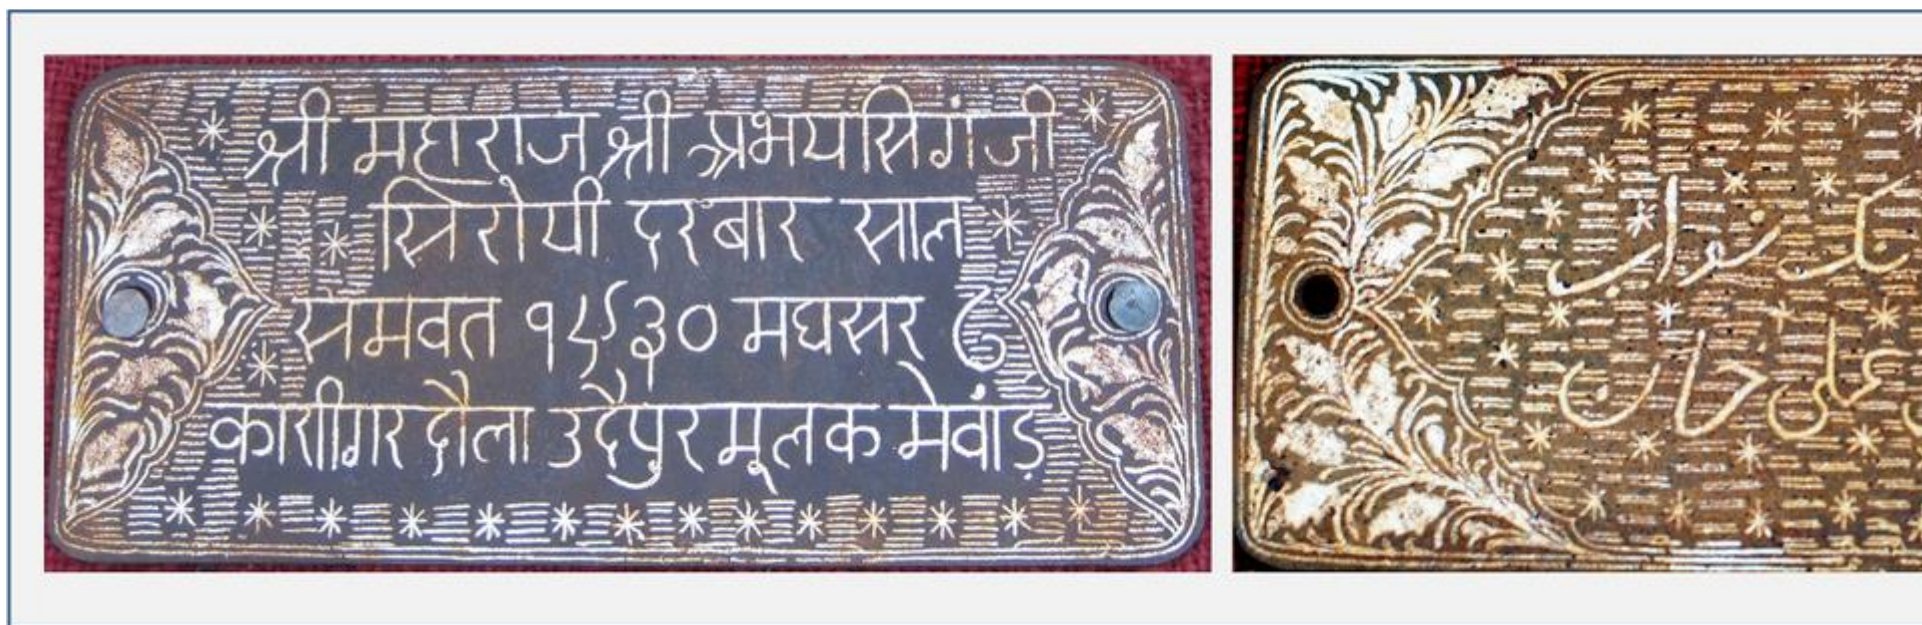 श्री महाराज श्री अभयसिंगंजी
सिरोयी दरबार साल
समवत १९३० मघसर ८
कारीगर दौला उदैपुर मूलक मेवांड़
نواب
علی خان